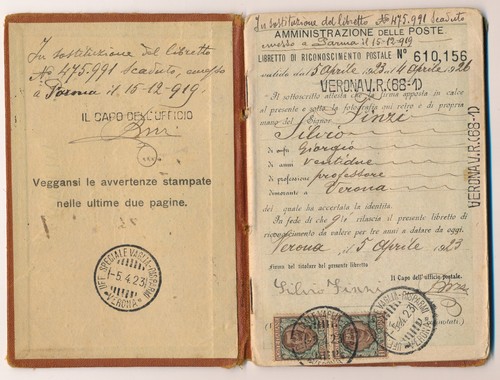 In sostituzione del libretto
No 475.991 scaduto, emesso
a Parma il 15-12-919.
IL CAPO DELL'UFFICIO
Veggansi le avvertenze stampate
nelle ultime due pagine.
UFF. SPECIALE VAGLIA-RISPARMI
-5.4.23
VERONA
In sostituzione del libretto No 475.991 scaduto
AMMINISTRAZIONE DELLE POSTE
emesso a Parma il 15-12-919
LIBRETTO DI RICONOSCIMENTO POSTALE No 610,156
valido dal 5 Aprile 1923 al 4 Aprile 1926
VERONA V.R.(68-1)
Il sottoscritto attesta che la firma apposta in calce
al presente e sotto la fotografia qui retro è di propria
mano del Signor Finzi
Silvio
di Giorgio
di anni ventidue
di professione professore
dimorante a Verona
dei quale ha accertata la identità.
In fede di che gli rilascia il presente libretto di
riconoscimento da valere per tre anni a datare da oggi.
Verona, il 5 Aprile 1923
Firma del titolare del presente libretto
Il Capo dell'ufficio postale.
Silvio Finzi
VERONA V.R.(68-1)